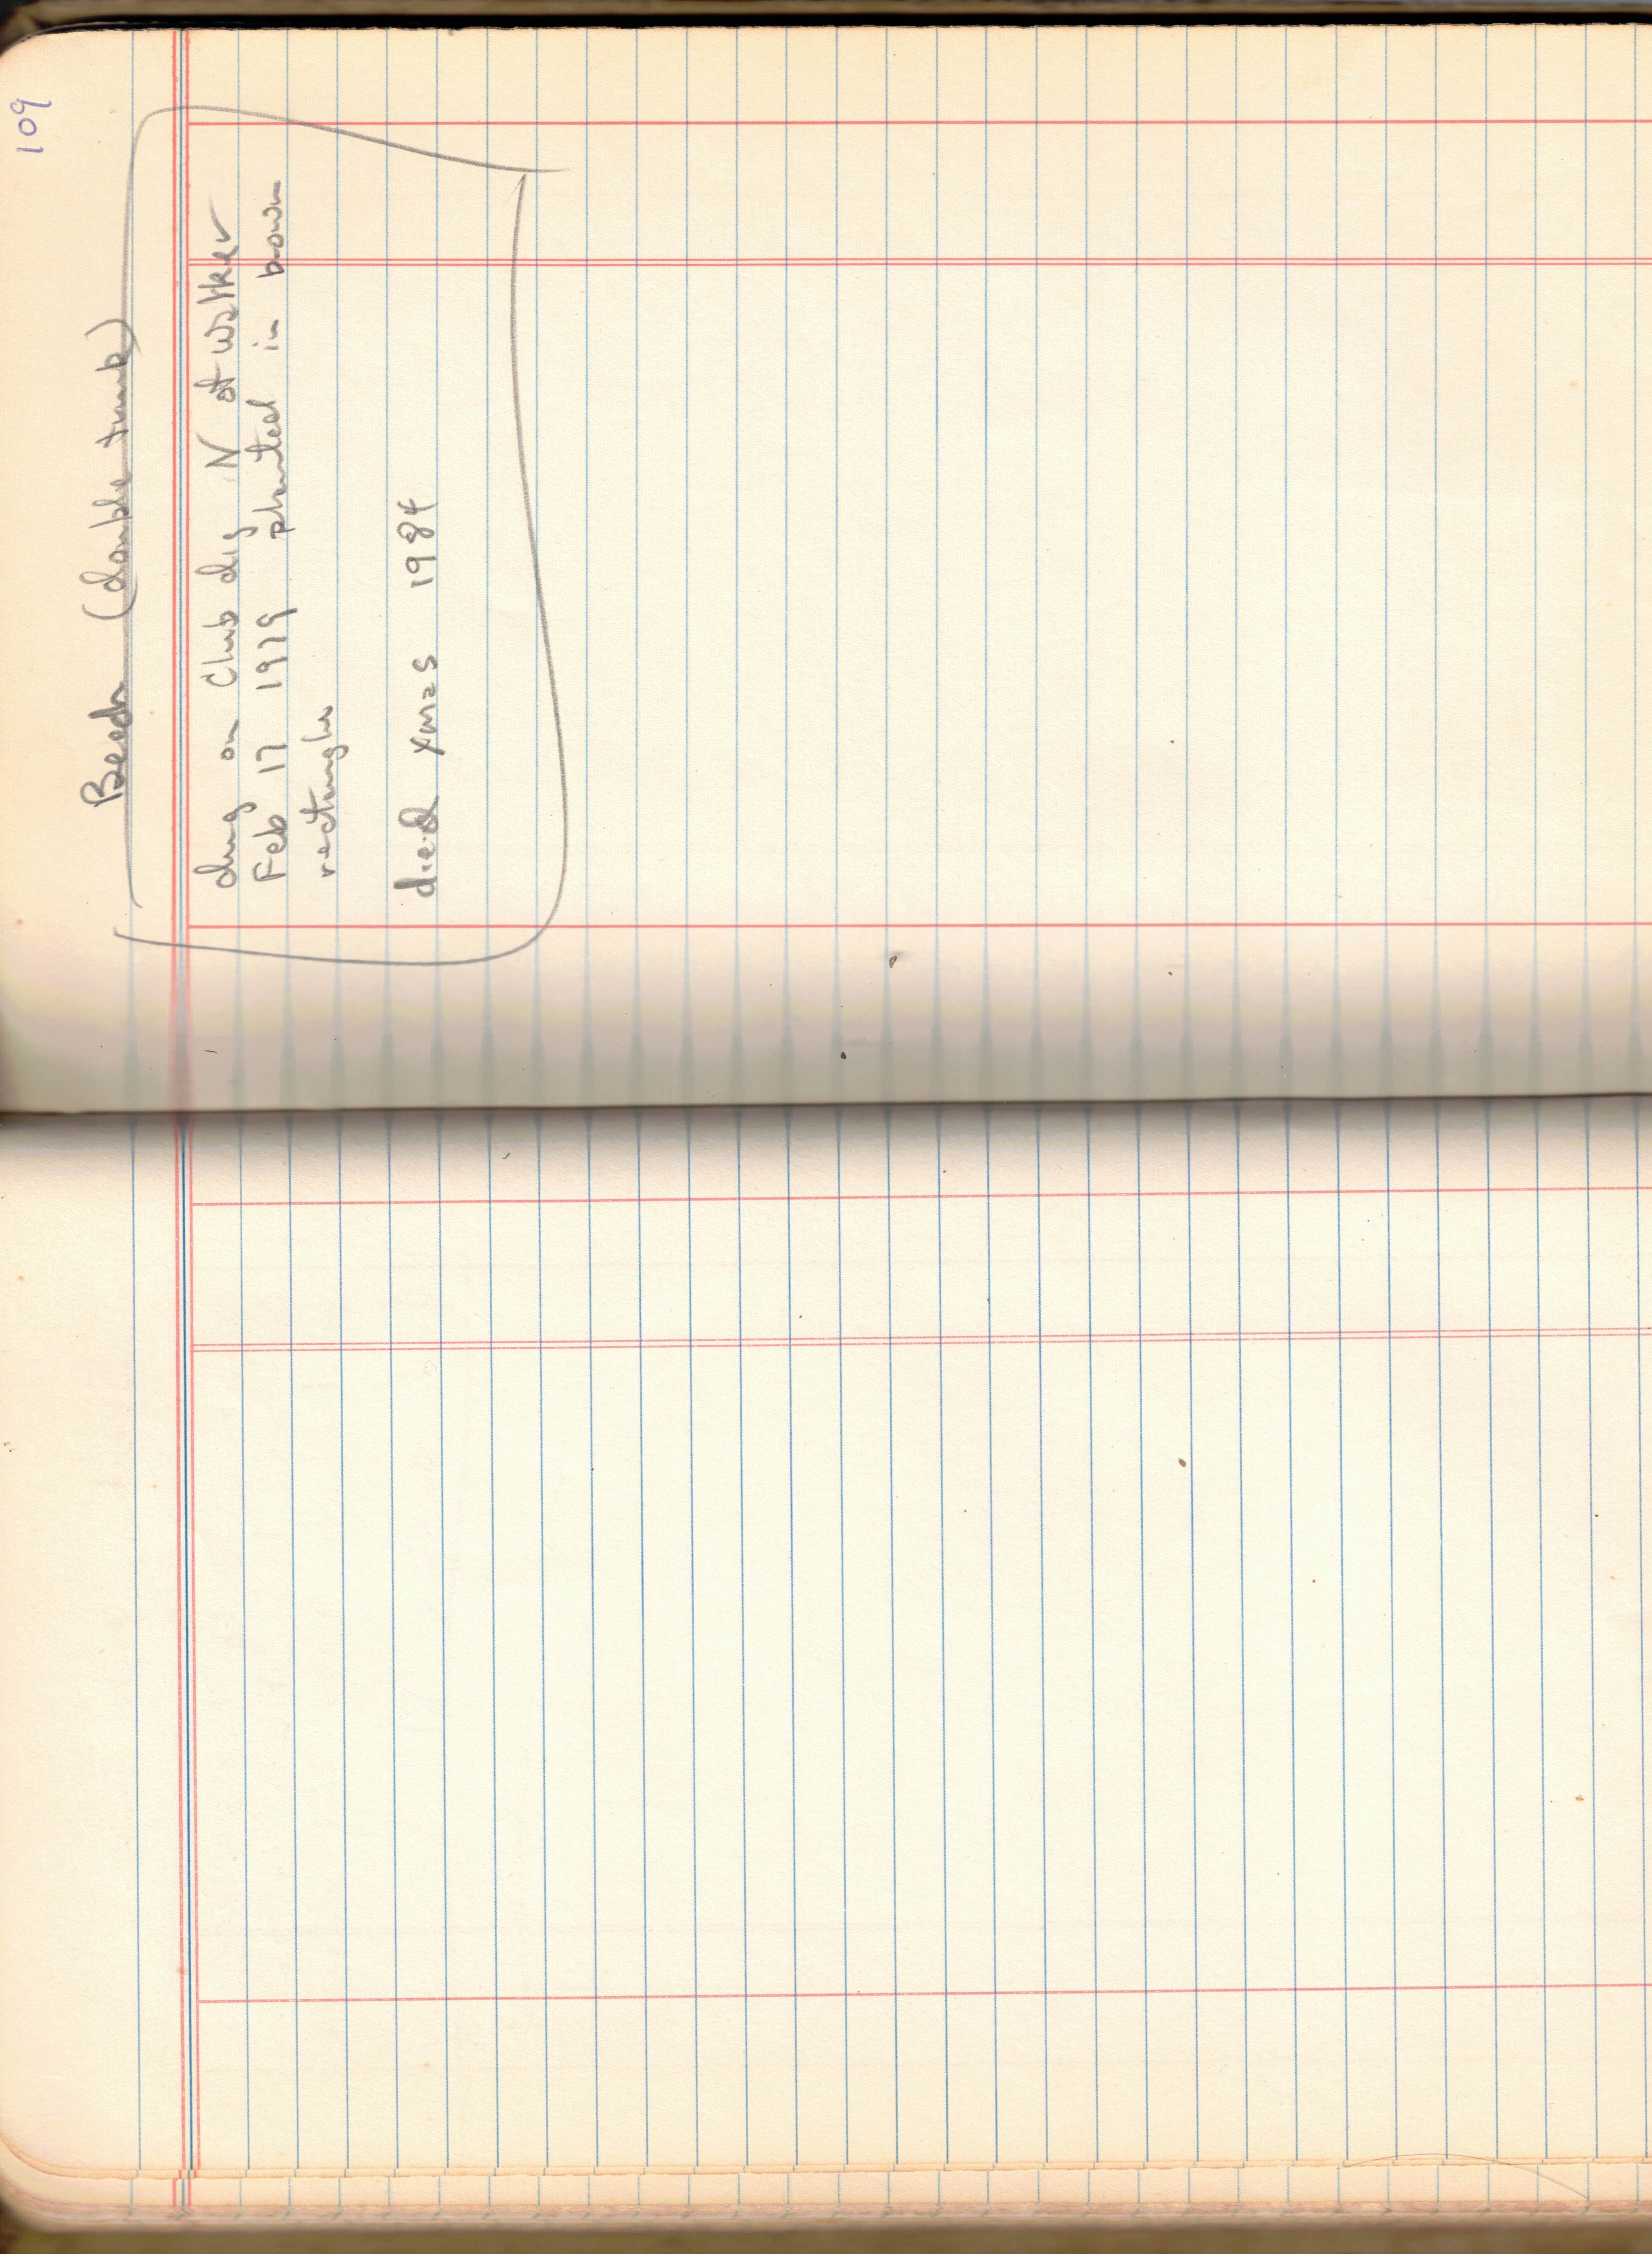 109
Beech (double trunk)
dug on Club dig N of Walker
Feb 17 1979 planted in brown
rectangle
died xmas 1984